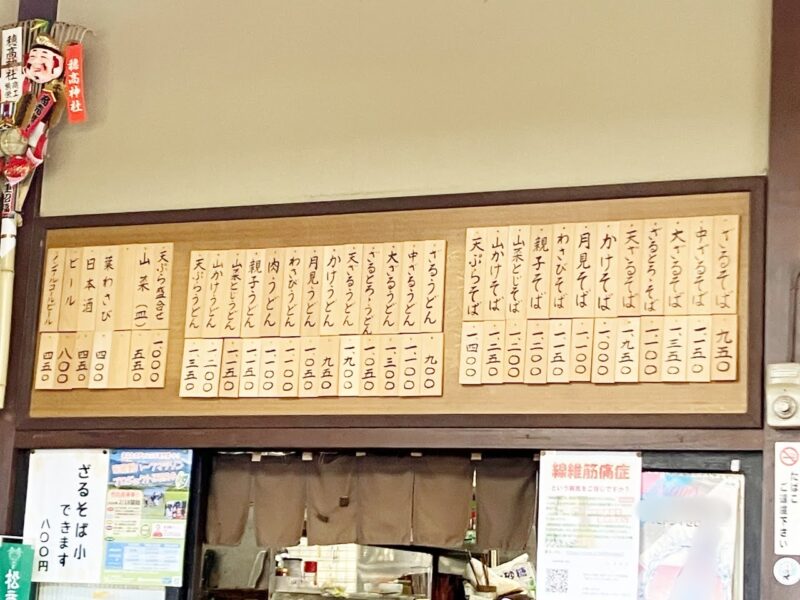 ざるそば 九五〇
中ざるそば 一一五〇
大ざるそば 一三五〇
ざるとろそば 一一〇〇
天ざるそば 一九五〇
かけそば 一〇〇〇
月見そば 一一〇〇
わさびそば 一一五〇
親子そば 一二〇〇
山菜とじそば 一二〇〇
山かけそば 一二五〇
天ぷらそば 一四〇〇
ざるうどん 九〇〇
中ざるうどん 一一〇〇
大ざるうどん 一三〇〇
ざるとろうどん 一〇五〇
天ざるうどん 一九〇〇
かけうどん 九五〇
月見うどん 一〇五〇
わさびうどん 一一〇〇
肉うどん 一一〇〇
親子うどん 一一五〇
山菜とじうどん 一一五〇
山かけうどん 一二〇〇
天ぷらうどん 一三五〇
天ぷら盛合せ 一〇〇〇
山菜(皿) 五五〇
葉わさび 四〇〇
日本酒 四五〇
ビール 八〇〇
ノンアルコールビール 四五〇
穂高神社
穂高神社
ざるそば小
できます
八〇〇円
線維筋痛症
という病気をご存じですか?
砂糖
たばこ
ご遠慮下さい